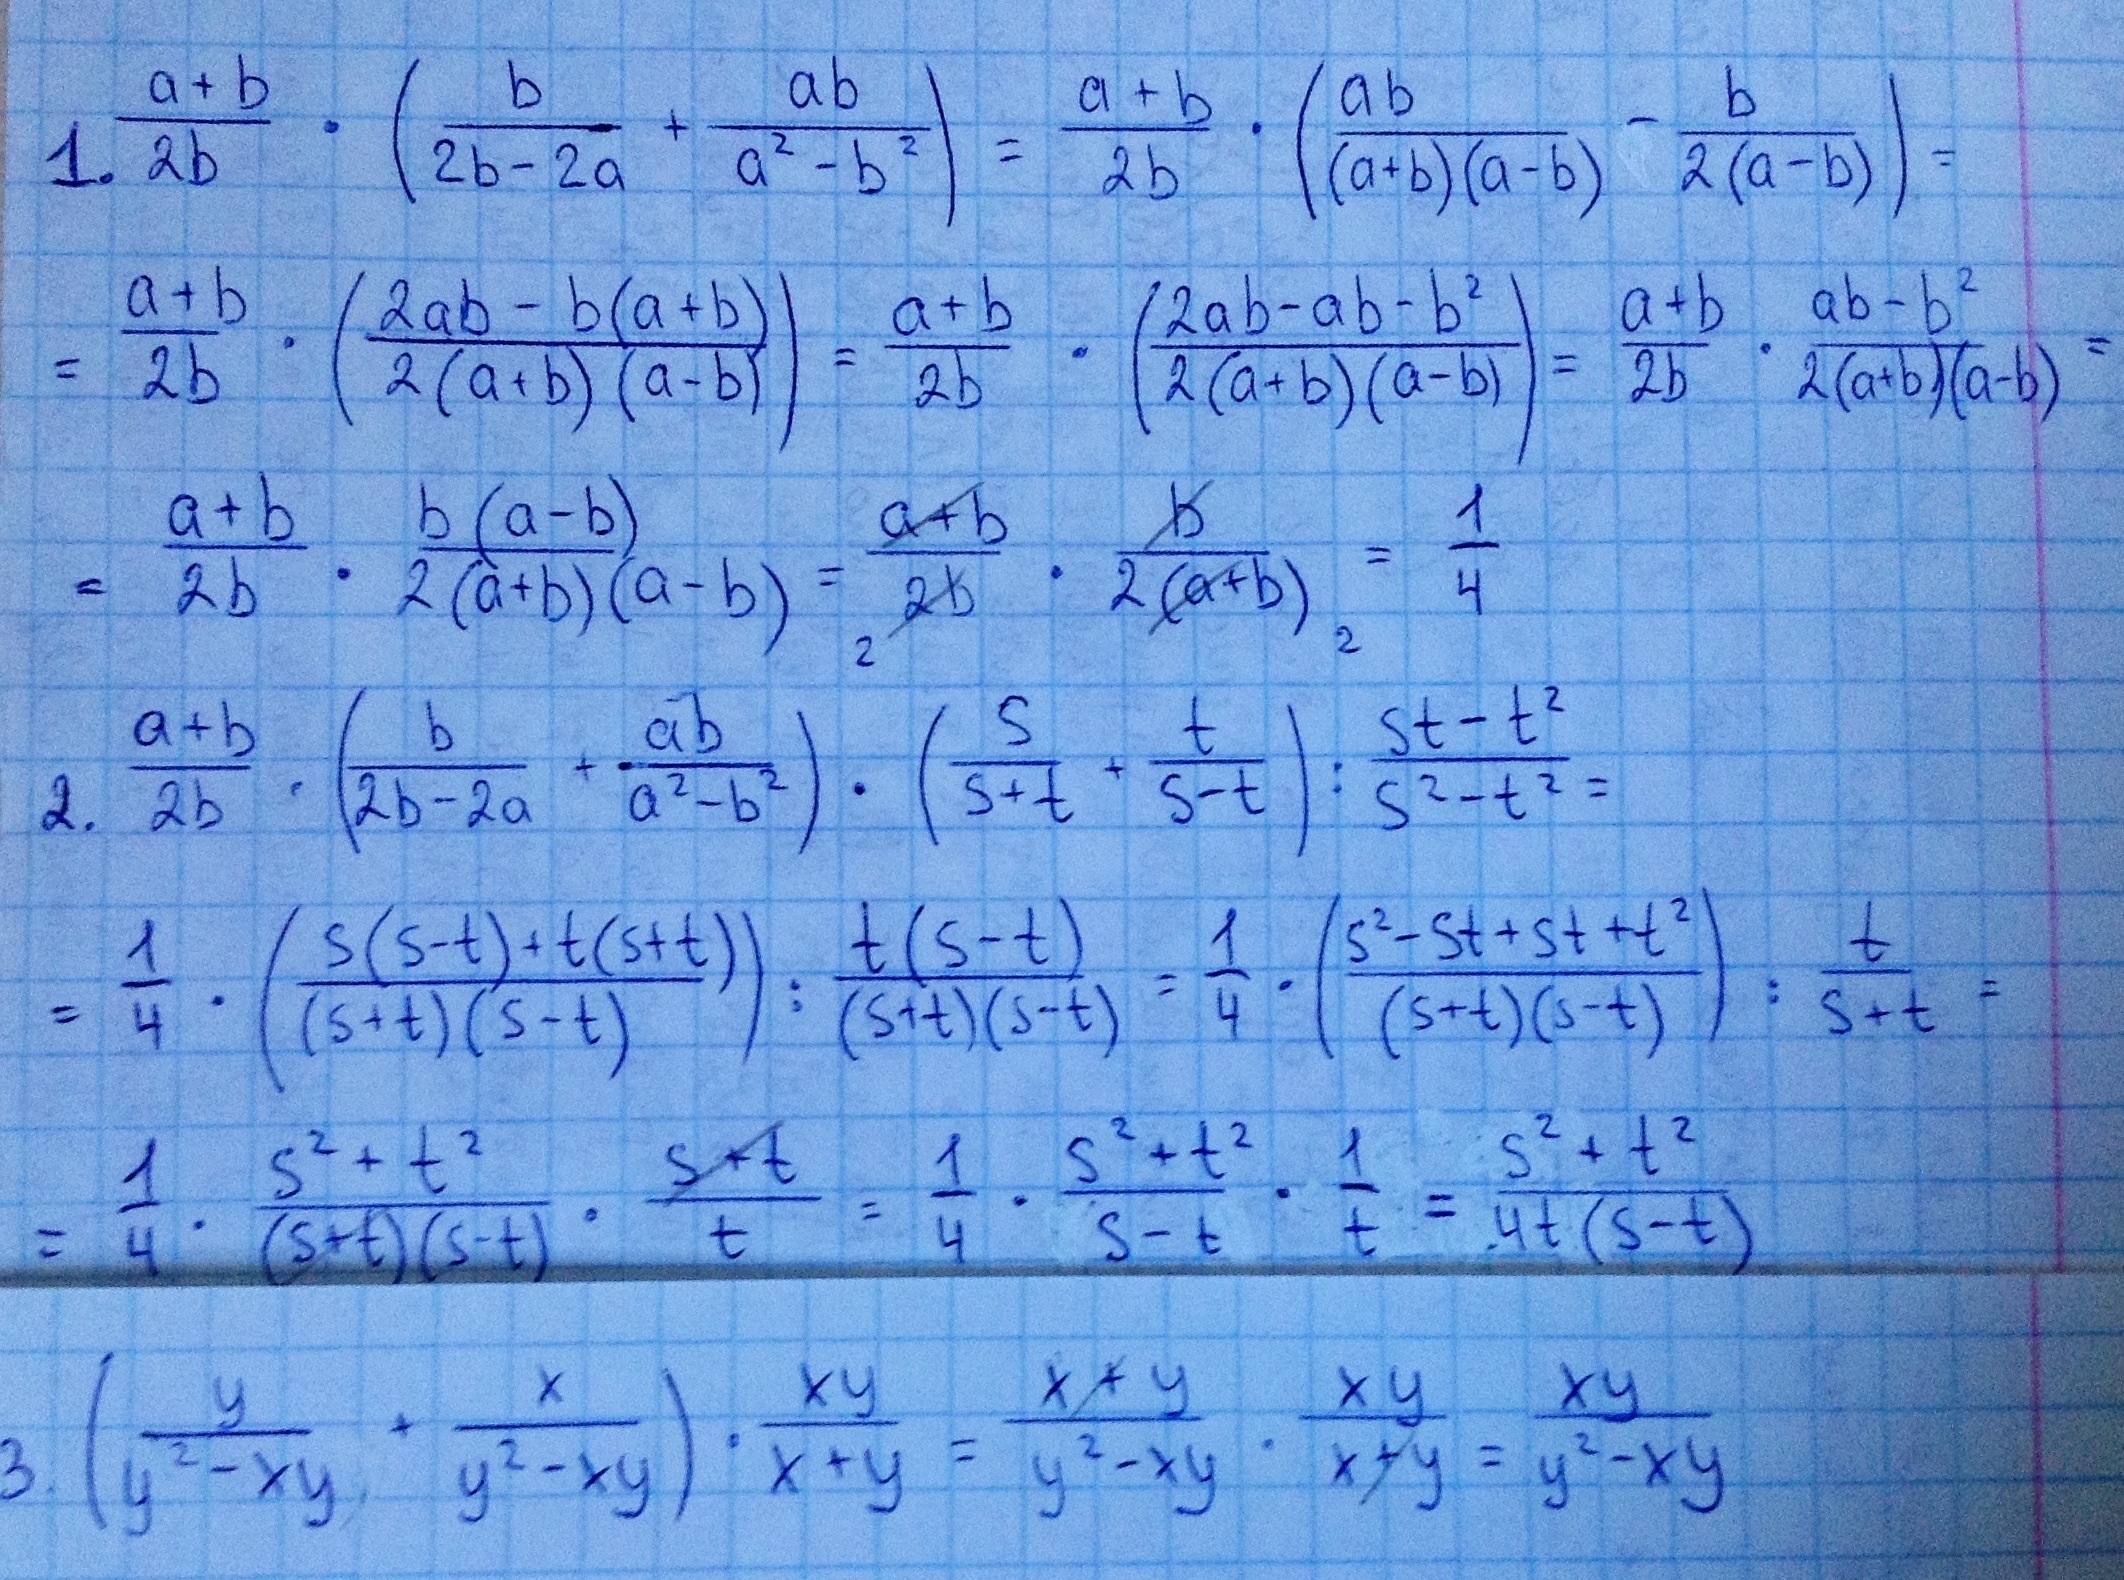 1. (a+b)/(2b) · (b/(2b-2a) + ab/(a²-b²)) = (a+b)/(2b) · (ab/((a+b)(a-b)) - b/(2(a-b))) =
= (a+b)/(2b) · ((2ab-b(a+b))/(2(a+b)(a-b))) = (a+b)/(2b) · ((2ab-ab-b²)/(2(a+b)(a-b))) = (a+b)/(2b) · (ab-b²)/(2(a+b)(a-b)) =
= (a+b)/(2b) · b(a-b)/(2(a+b)(a-b)) = (a+b)/(2b) 2 · b/(2(a+b)) 2 = 1/4
2. (a+b)/(2b) · (b/(2b-2a) + ab/(a²-b²)) · (s/(s+t) + t/(s-t)) : (st-t²)/(s²-t²) =
= 1/4 · ((s(s-t)+t(s+t))/((s+t)(s-t))) : t(s-t)/((s+t)(s-t)) = 1/4 · ((s²-st+st+t²)/((s+t)(s-t))) : t/(s+t) =
= 1/4 · (s²+t²)/((s+t)(s-t)) · (s+t)/t = 1/4 · (s²+t²)/(s-t) · 1/t = (s²+t²)/(4t(s-t))
3. (y/(y²-xy) + x/(y²-xy)) · xy/(x+y) = (x+y)/(y²-xy) · xy/(x+y) = xy/(y²-xy)